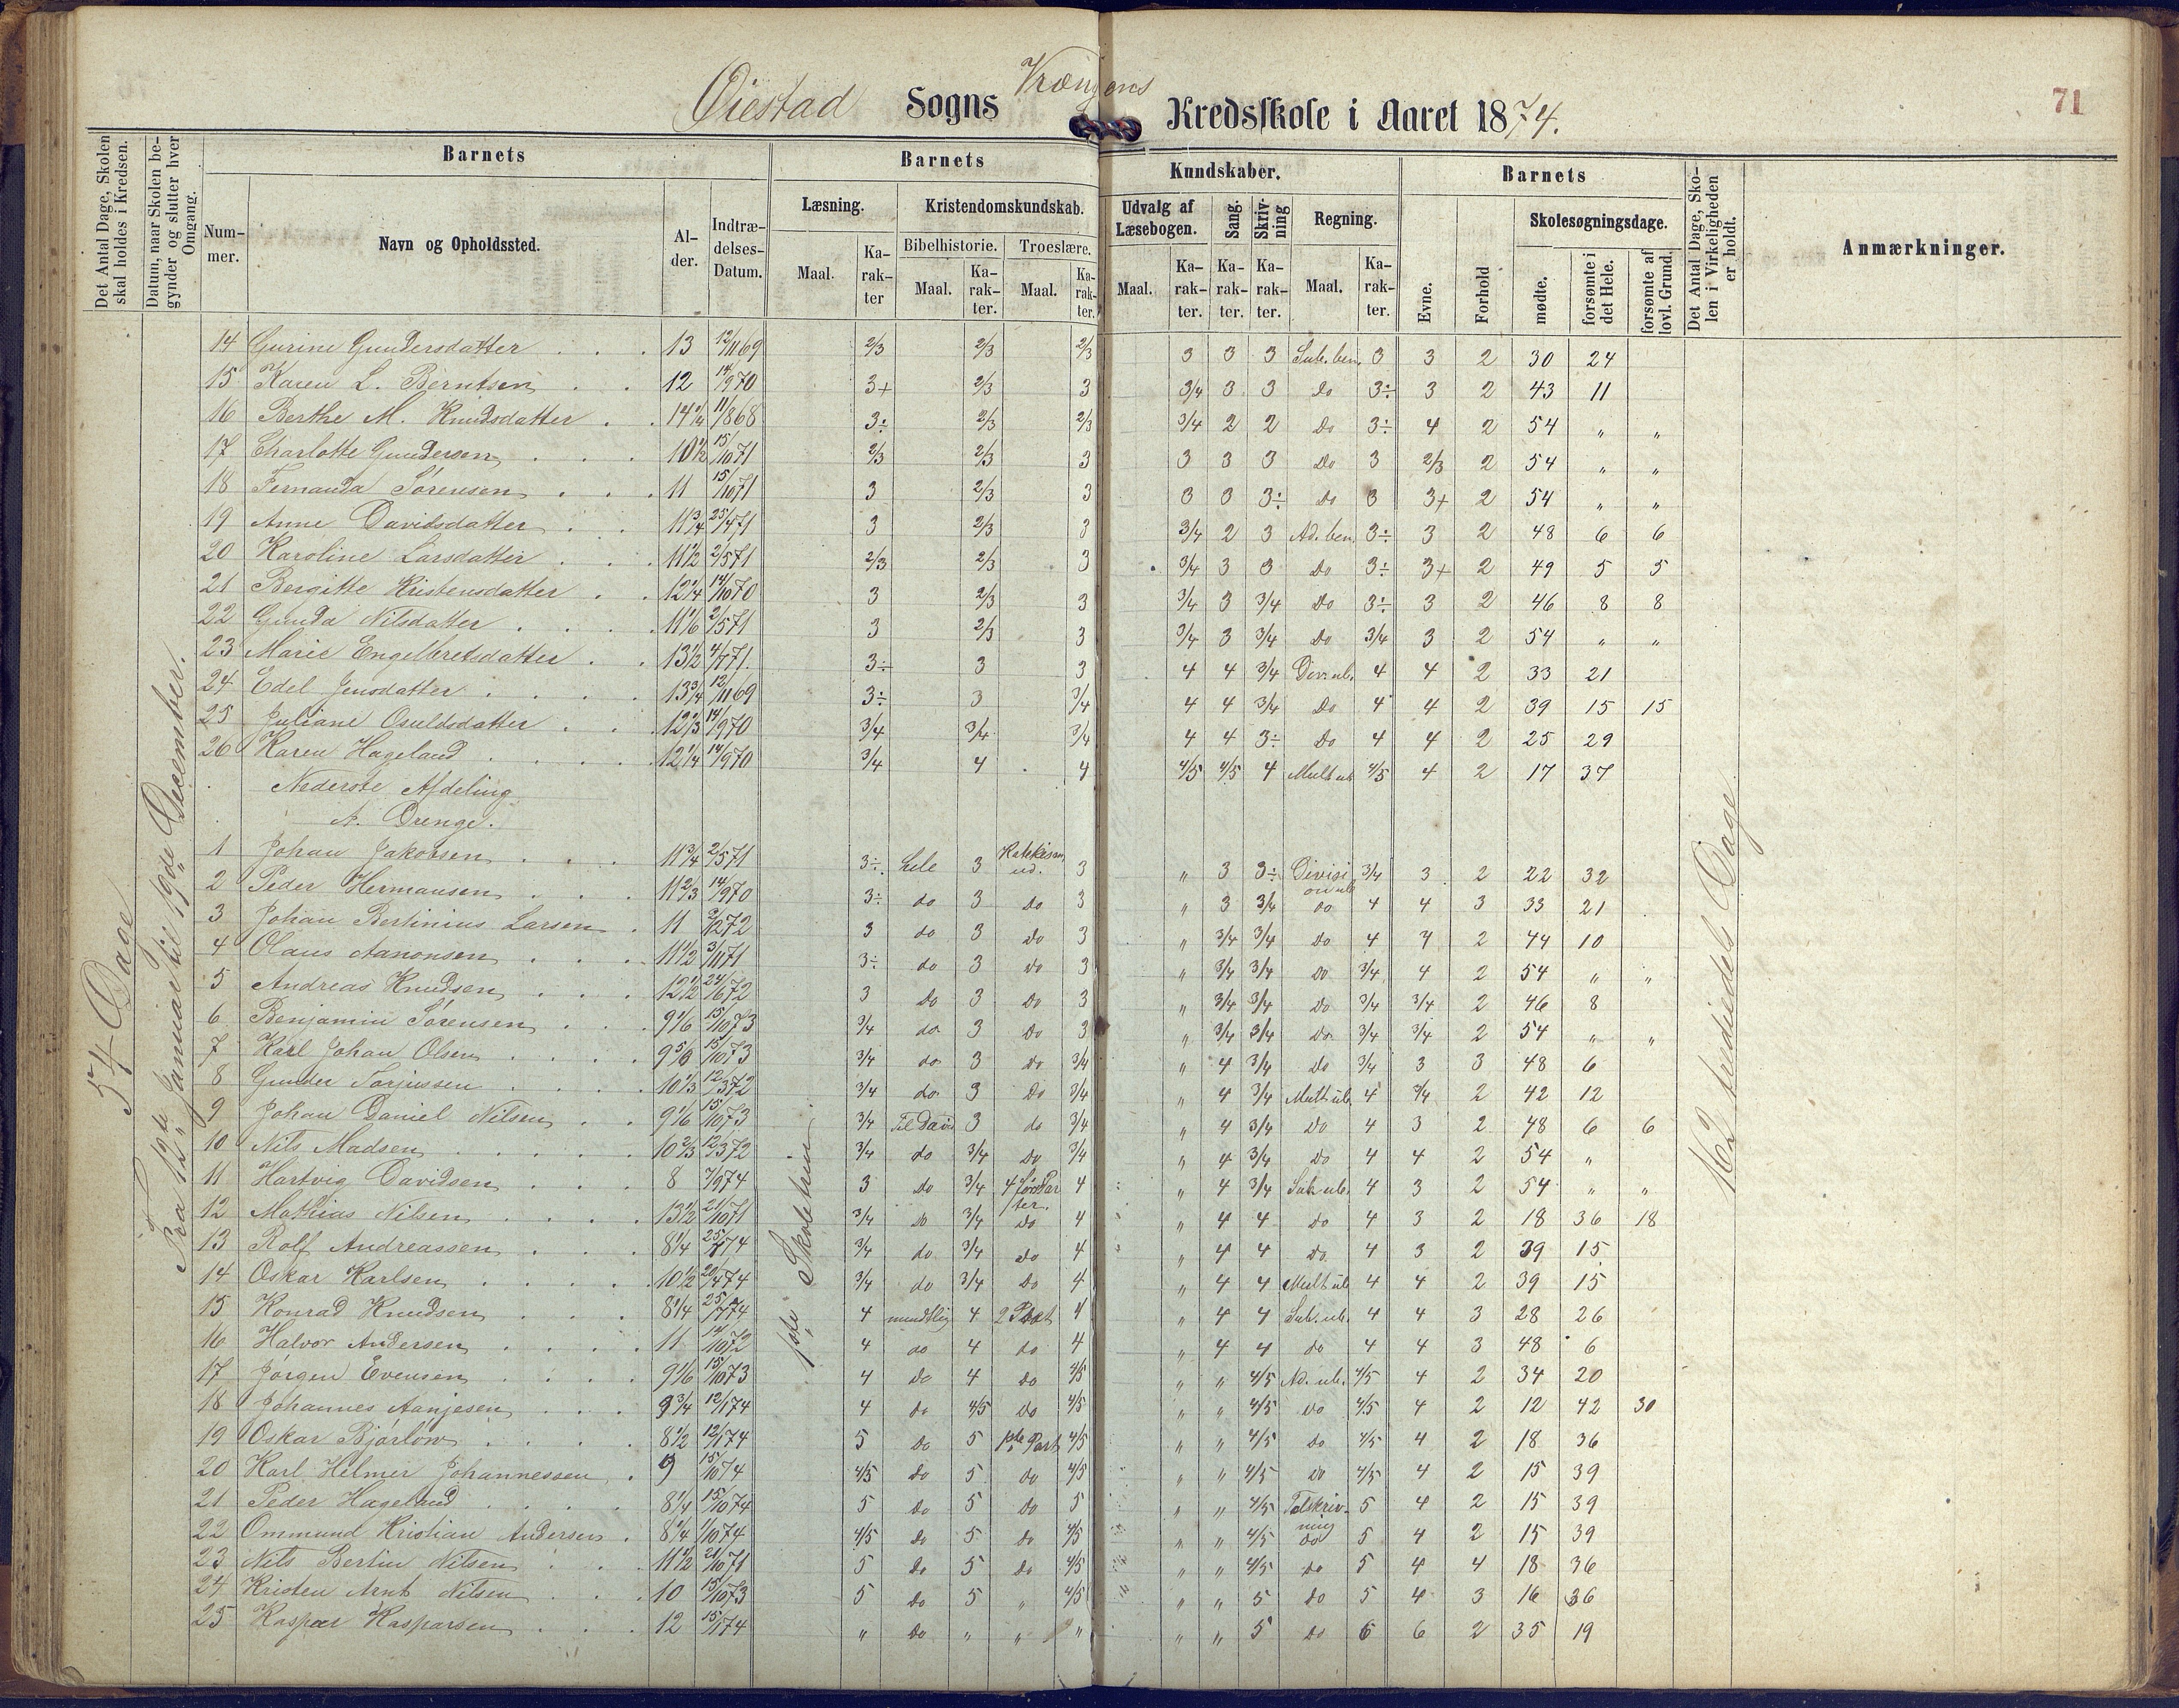 Øiestad Sogns Vrængens Kredsskole i Aaret 1874.
71
Det Antal Dage, Skolen skal holdes i Kredsen.
Datum, naar Skolen begynder og slutter hver Omgang.
Barnets
Nummer.
Navn og Opholdssted.
Alder.
Indtrædelses-Datum.
Barnets Kundskaber.
Læsning.
Maal.
Karakter
Kristendomskundskab.
Bibelhistorie.
Maal.
Karakter.
Troeslære.
Maal.
Karakter.
Udvalg af Læsebogen.
Maal.
Karakter.
Sang.
Karakter.
Skrivning
Karakter.
Regning.
Maal.
Karakter.
Barnets
Evne.
Forhold
Skolesøgningsdage.
mødte.
forsømte i det Hele.
forsømte af lovl. Grund.
Det Antal Dage, Skolen i Virkeligheden er holdt.
Anmærkninger.
54 Dage
Fra 12te Januar til 19de December.
1ste Skoletrin
162 trediedels Dage
14 Gurine Gundersdatter 13 12/11 69 2/3 2/3 2/3 3 3 3 Sub. ben. 3 3 2 30 24
15 Karen L. Berntsen 12 14/9 70 3+ 2/3 3 3/4 3 3 Do 3÷ 3 2 43 11
16 Berthe M. Knudsdatter 14 1/4 11/8 68 3÷ 2/3 2/3 3/4 2 2 Do 3÷ 4 2 54 " "
17 Charlotte Gundersen 10 1/2 15/10 71 2/3 2/3 3 3 3 3 Do 3 2/3 2 54 " "
18 Fernanda Sørensen 11 15/10 71 3 2/3 3 3 3 3÷ Do 3 3+ 2 54 " "
19 Anne Davidsdatter 11 3/4 25/4 71 3 2/3 3 3/4 2 3 Ad. ben. 3÷ 3 2 48 6 6
20 Karoline Larsdatter 11 1/2 2/5 71 2/3 2/3 3 3/4 3 3 Do 3÷ 3+ 2 49 5 5
21 Bergitte Kristensdatter 12 1/4 14/10 70 3 2/3 3 3/4 3 3/4 Do 3÷ 3 2 46 8 8
22 Gunda Nilsdatter 11 1/6 2/5 71 3 2/3 3 3/4 3 3/4 Do 3/4 3 2 54 " "
23 Marie Engelbretsdatter 13 1/2 4/7 71. 3÷ 3 3 4 4 3/4 Div. ub. 4 4 2 33 21
24 Edel Jensdatter 13 3/4 12/11 69 3÷ 3 3/4 4 4 3/4 Do 4 4 2 39 15 15
25 Juliane Osuldsdatter 12 2/3 14/9 70 3/4 3/4 3/4 4 4 3÷ Do 4 4 2 25 29
26 Karen Hageland 12 1/4 14/9 70 3/4 4 4 4/5 4/5 4 Mult ub 4/5 4 2 17 37
Nederste Afdeling
A. Drenge.
1 Johan Jakobsen 11 3/4 2/5 71 3÷ hele 3 Katekism. ud. 3 " 3 3÷ Division ub 3/4 3 2 22 32
2 Peder Hermansen 11 2/3 14/9 70 3÷ do 3 do 3 " 3 3/4 do 4 4 3 33 21
3 Johan Bertinius Larsen 11 72 3 do 3 Do 3 " 3/4 3/4 Do 4 4 2 44 10
4 Olaus Aanonsen 11 1/2 3/11 71 3÷ do 3 do 3 " 3/4 3/4 Do 3/4 4 2 54 " "
5 Andreas Knudsen 12 1/2 24/6 72 3 Do 3 Do 3 " 3/4 3/4 Do 3/4 3/4 2 46 8
6 Benjamin Sørensen 9 1/6 15/10 73 3/4 do 3 Do 3 " 3/4 3/4 Do 3/4 3/4 2 54 " "
7 Karl Johan Olsen 9 5/6 15/10 73 3/4 do 3 Do 3/4 " 4 3/4 Do 3/4 3 3 48 6
8 Gunder Torjussen 10 1/3 12/3 72 3/4 do 3 Do 3/4 " 4 3/4 Mult ub. 4 3/4 2 42 12
9 Johan Daniel Nilsen 9 1/6 15/10 73 3/4 Til David 3 do 3/4 " 4 3/4 Do 4 3 2 48 6 6
10 Nils Madsen 10 2/3 12/3 72 3/4 do 3/4 Do 3/4 " 4 3/4 Do 4 4 2 54 "
11 Hartvig Davidsen 8 7/9 74 3 Do 3/4 4 før Parter. 4 " 4 3/4 Sub ub. 4 3 2 54 " "
12 Mathias Nilsen 13 1/2 21/10 71 3/4 Do 3/4 Do 4 " 4 4 do 4 3 2 18 36 18
13 Rolf Andreassen 8 1/4 25/7 74 3/4 do 3/4 Do 4 " 4 4 do. 4 3 2 39 15
14 Oskar Karlsen 10 1/2 20/4 74 3/4 do 3/4 Do 4 " 4 4 Mult ub 4 4 2 39 15
15 Konrad Knudsen 8 1/4 25/7 74 4 mundtlig 4 2 Part 4 " 4 4 Sub. ub. 4 4 3 28 26
16 Halvor Andersen 11 14/10 72 4 do 4 do 4 " 4 4 do 4 4 3 48 6
17 Jørgen Evensen 9 1/6 15/10 73 4 Do 4 do 4/5 " " 4/5 Ad. ub. 4/5 4 2 34 20
18 Johannes Aanjesen 9 3/4 12/1 74 4 do 4/5 Do 4/5 " " 4/5 Do 4/5 4 2 12 42 30
19 Oskar Bjørløw 8 1/2 12/1 74 5 Do 5 1ste Part 4/5 " " 4/5 Do 4/5 4 2 18 36
20 Karl Helmer Johannessen 9 15/10 74 4/5 Do 5 do 4/5 " " 4/5 Do 4/5 4 2 15 39
21 Peder Hageland 8 1/4 15/10 74 5 Do 5 Do 5 " " 4/5 Talskrivning 5 4 2 15 39
22 Ommund Kristian Andersen 8 1/4 1/10 74 4/5 Do 5 do 4/5 " " 4/5 do 5 4 2 15 39
23 Nils Bertin Nilsen 11 1/2 21/10 71 5 Do 5 Do 4/5 " " 4/5 Do 5 4 4 18 36
24 Kristen Arnt Nilsen 10 15/10 73 5 Do 5 " 4/5 " " 5 Do 5 4 3 16 36
25 Kaspar Kasparsen 12 15/1 74 " Do " " " " " 5 Do 6 6 2 35 19